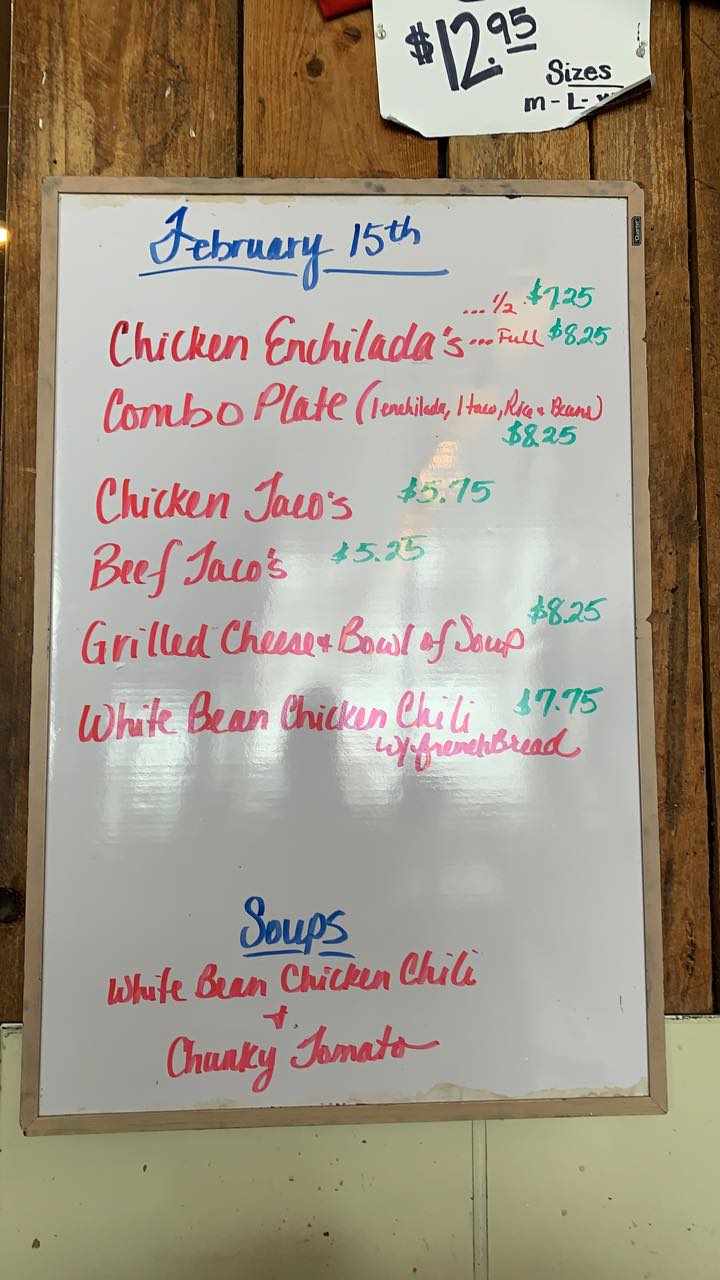 $12.95
Sizes
m - L -
February 15th
...1/2 $7.25
Chicken Enchilada's ...Full $8.25
Combo Plate (1 enchilada, 1 taco, Rice + Beans)
$8.25
Chicken Taco's $5.75
Beef Taco's $5.25
$8.25
Grilled Cheese + Bowl of Soup
White Bean Chicken Chili $7.75
w/ french Bread
Soups
White Bean Chicken Chili
+
Chunky Tomato